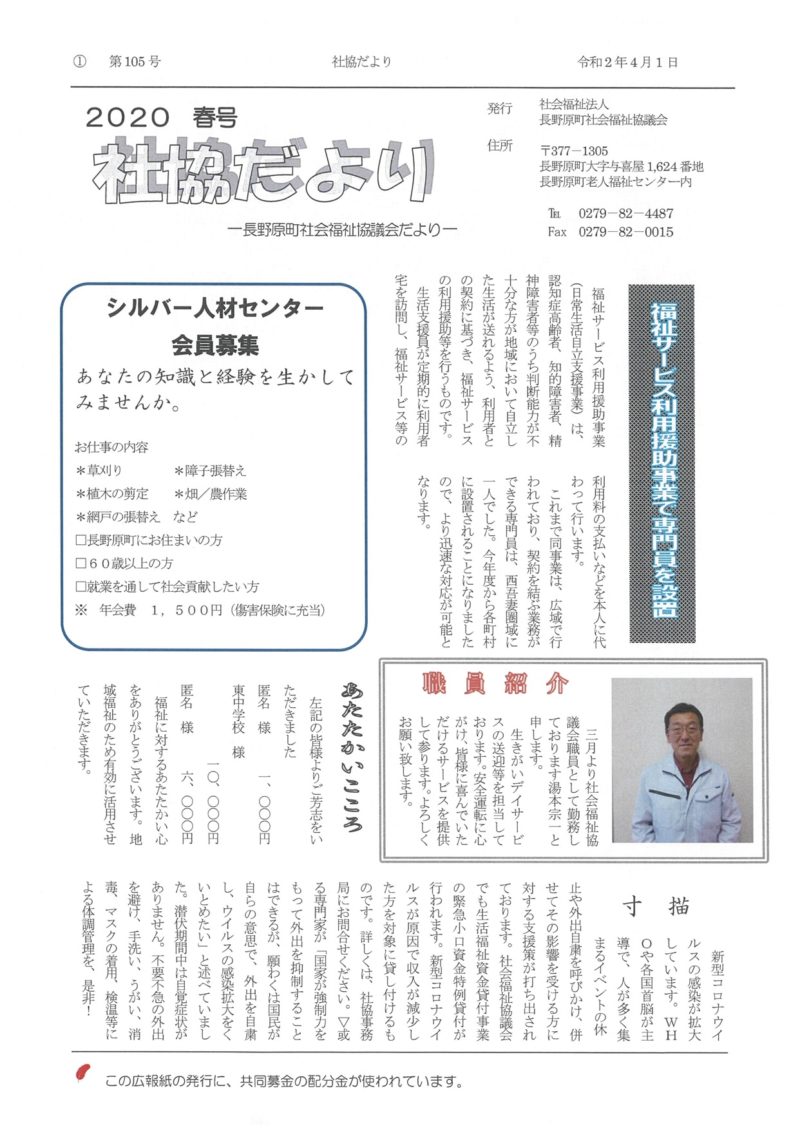 ① 第105号 社協だより 令和2年4月1日
2020 春号
社協だより
―長野原町社会福祉協議会だより―
発行 社会福祉法人
長野原町社会福祉協議会
住所 〒377－1305
長野原町大字与喜屋1,624番地
長野原町老人福祉センター内
℡ 0279－82－4487
Fax 0279－82－0015
福祉サービス利用援助事業で専門員を設置
福祉サービス利用援助事業
（日常生活自立支援事業）は、
認知症高齢者、知的障害者、精
神障害者等のうち判断能力が不
十分な方が地域において自立し
た生活が送れるよう、利用者と
の契約に基づき、福祉サービス
の利用援助等を行うものです。
生活支援員が定期的に利用者
宅を訪問し、福祉サービス等の
利用料の支払いなどを本人に代
わって行います。
これまで同事業は、広域で行
われており、契約を結ぶ業務が
できる専門員は、西吾妻圏域に
一人でした。今年度から各町村
に設置されることになりました
ので、より迅速な対応が可能と
なります。
シルバー人材センター
会員募集
あなたの知識と経験を生かして
みませんか。
お仕事の内容
＊草刈り ＊障子張替え
＊植木の剪定 ＊畑／農作業
＊網戸の張替え など
□長野原町にお住まいの方
□６０歳以上の方
□就業を通して社会貢献したい方
※ 年会費 １，５００円（傷害保険に充当）
職員紹介
三月より社会福祉協
議会職員として勤務し
ております湯本宗一と
申します。
生きがいデイサービ
スの送迎等を担当して
おります。安全運転に心
がけ、皆様に喜んでいた
だけるサービスを提供
して参ります。よろしく
お願い致します。
あたたかいこころ
左記の皆様よりご芳志をい
ただきました
匿名 様 一、〇〇〇円
東中学校 様
一〇、〇〇〇円
匿名 様 六、〇〇〇円
福祉に対するあたたかい心
をありがとうございます。地
域福祉のため有効に活用させ
ていただきます。
寸描
新型コロナウイ
ルスの感染が拡大
しています。ＷＨ
Ｏや各国首脳が主
導で、人が多く集
まるイベントの休
止や外出自粛を呼びかけ、併
せてその影響を受ける方に
対する支援策が打ち出され
ております。社会福祉協議会
でも生活福祉資金貸付事業
の緊急小口資金特例貸付が
行われます。新型コロナウイ
ルスが原因で収入が減少し
た方を対象に貸し付けるも
のです。詳しくは、社協事務
局にお問合せください。▽或
る専門家が「国家が強制力を
もって外出を抑制すること
はできるが、願わくは国民が
自らの意思で、外出を自粛
し、ウイルスの感染拡大をく
いとめたい」と述べていまし
た。潜伏期間中は自覚症状が
ありません。不要不急の外出
を避け、手洗い、うがい、消
毒、マスクの着用、検温等に
よる体調管理を、是非！
この広報紙の発行に、共同募金の配分金が使われています。